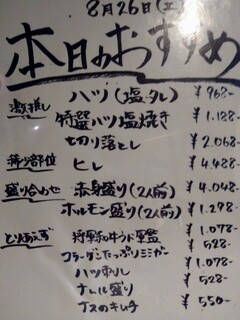 8月26日(土)
本日のおすすめ
激推し ハツ(塩.タレ) ¥968-
特選ハツ塩焼き ¥1.188-
切り落とし ¥2.068-
希少部位 ヒレ ¥4.488-
盛り合わせ 赤身盛り(2人前) ¥4.048-
ホルモン盛り(2人前) ¥1.298-
とりあえず ¥1.078-
¥528-
コラーゲンたっぷりミミガー ¥1.078-
ハツ刺し ¥528-
ナムル盛り ¥550-
ナスのキムチ